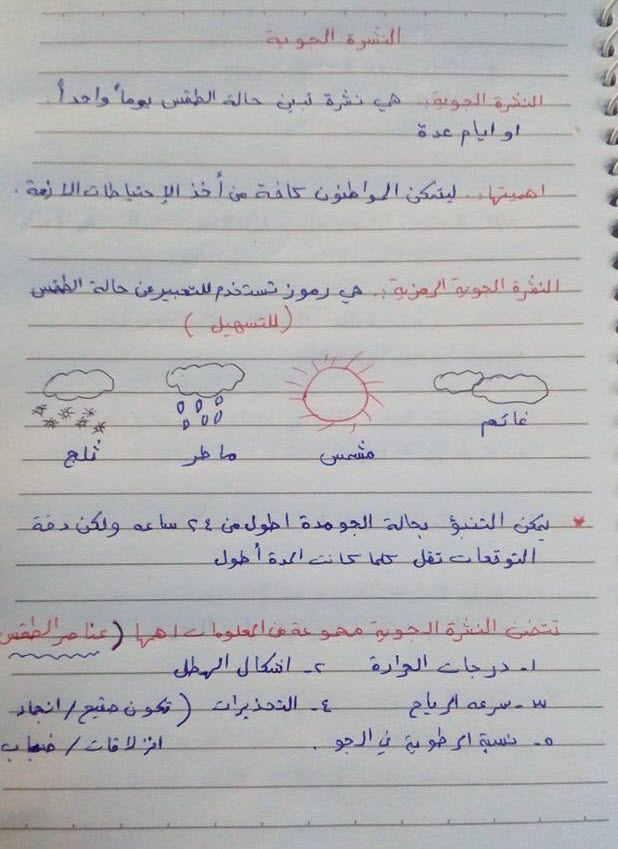 النشرة الجوية
النشرة الجوية.. هي نشرة تبين حالة الطقس يوماً واحداً.
او ايام عدة
اهميتها.. ليتمكن المواطنون كافة من أخذ الإحتياطات الازمة.
النشرة الجوية الرمزية.. هي رموز تستخدم للتعبير عن حالة الطقس
(للتسهيل)
غائم
مشمس
ماطر
ثلج
* يمكن التنبؤ بحالة الجو مدة اطول من ٢٤ ساعه ولكن دقة
التوقعات تقل كلما كانت المدة أطول
تتضمن النشرة الجوية مجموعة من المعلومات اهمها (عناصر الطقس
١- درجات الحرارة ٢- اشكال الهطل
٣- سرعه الرياح ٤- التحذيرات (تكون صقيع / انجماد
٥- نسبة الرطوبة في الجو. انزلاقات / ضباب